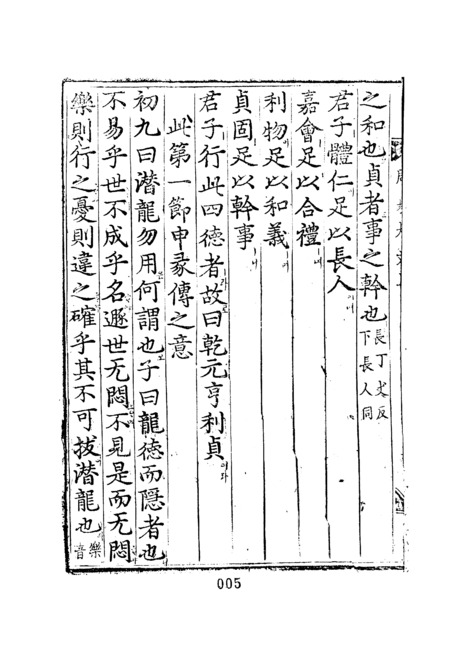 之和也貞者事之幹也長丁丈反下長人同
君子體仁足以長人
嘉會足以合禮
利物足以和義
貞固足以幹事
君子行此四德者故曰乾元亨利貞
此第一節申彖傳之意
初九曰潛龍勿用何謂也子曰龍德而隱者也
不易乎世不成乎名遯世无悶不見是而无悶
樂則行之憂則違之確乎其不可拔潛龍也樂音
005